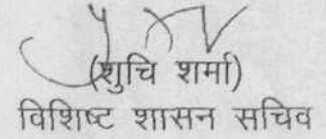 (शुचि शर्मा)
विशिष्ट शासन सचिव